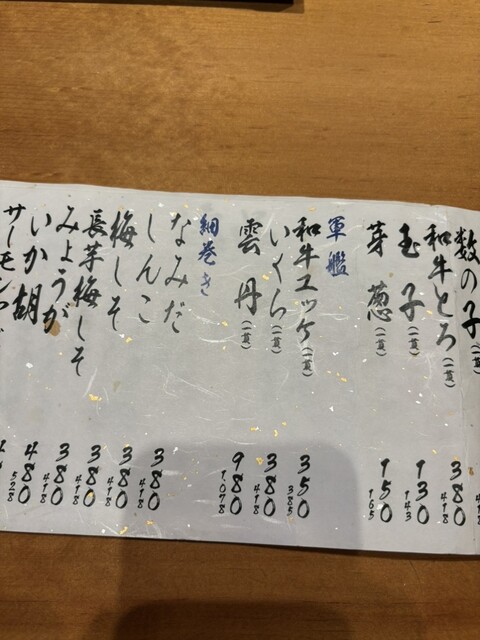 数の子(一貫)
和牛とろ(一貫) 380 418
玉子(一貫) 130 143
芽葱(一貫) 150 165
軍艦
和牛ユッケ(一貫) 350 385
いくら(一貫) 380 418
雲丹(一貫) 980 1078
細巻き
なみだ 380 418
しんこ 380 418
梅しそ 380 418
長芋梅しそ 380 418
みょうが 480 528
いか胡
サーモン